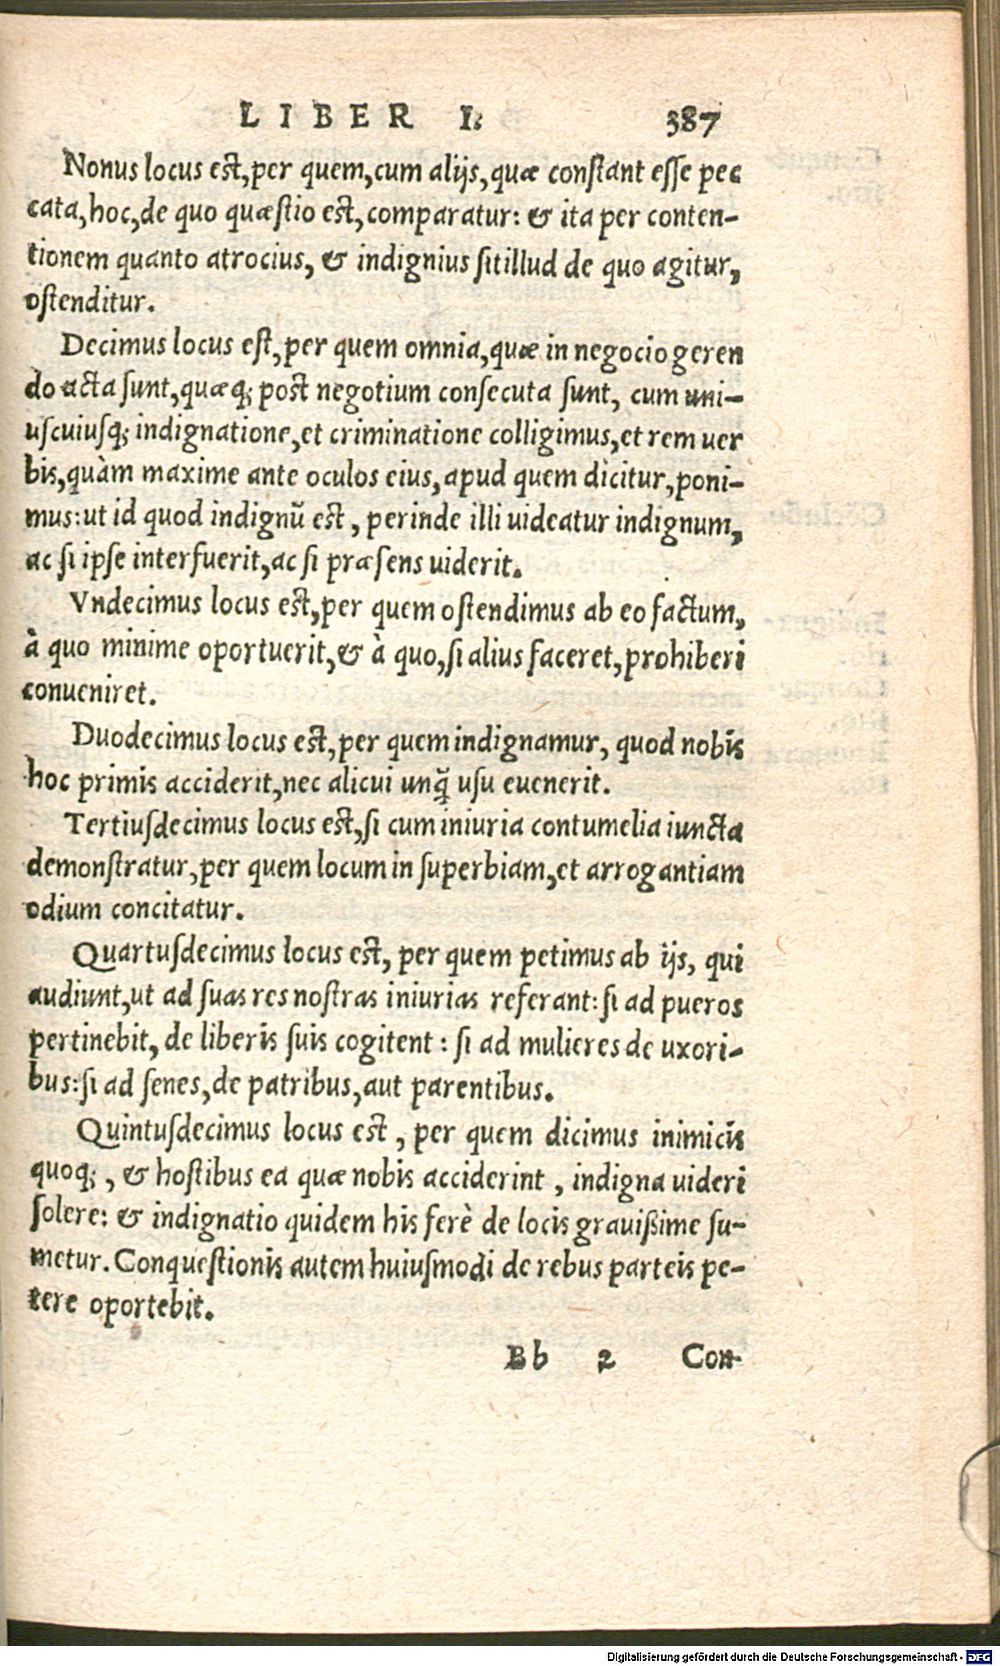 LIBER I. 387
Nonus locus est, per quem, cum alijs, quæ constant esse pec
cata, hoc, de quo quæstio est, comparatur: & ita per conten-
tionem quanto atrocius, & indignius sit illud de quo agitur,
ostenditur.
Decimus locus est, per quem omnia, quæ in negocio geren
do acta sunt, quæq; post negotium consecuta sunt, cum uni-
uscuiusq; indignatione, et criminatione colligimus, et rem uer
bis, quàm maxime ante oculos eius, apud quem dicitur, poni-
mus: ut id quod indignũ est, perinde illi uideatur indignum,
ac si ipse interfuerit, ac si præsens uiderit.
Vndecimus locus est, per quem ostendimus ab eo factum,
à quo minime oportuerit, & à quo, si alius faceret, prohiberi
conueniret.
Duodecimus locus est, per quem indignamur, quod nobis
hoc primis acciderit, nec alicui unq̃ usu euenerit.
Tertiusdecimus locus est, si cum iniuria contumelia iuncta
demonstratur, per quem locum in superbiam, et arrogantiam
odium concitatur.
Quartusdecimus locus est, per quem petimus ab ijs, qui
audiunt, ut ad suas res nostras iniurias referant: si ad pueros
pertinebit, de liberis suis cogitent: si ad mulieres de uxori-
bus: si ad senes, de patribus, aut parentibus.
Quintusdecimus locus est, per quem dicimus inimicis
quoq;, & hostibus ea quæ nobis acciderint, indigna uideri
solere: & indignatio quidem his ferè de locis grauißime su-
metur. Conquestionis autem huiusmodi de rebus parteis pe-
tere oportebit.
Bb 2 Con-
Digitalisierung gefördert durch die Deutsche Forschungsgemeinschaft - DFG